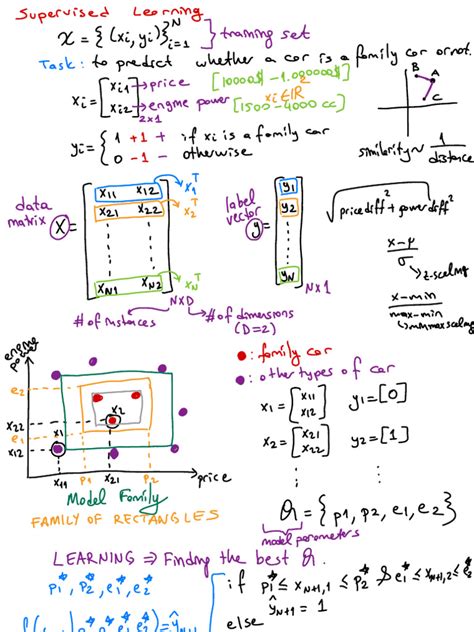 Supervised Learning
X = { (xi, yi) }^N i=1 } training set
Task: to predict whether a car is a family car or not.
xi = [ xi1 xi2 ] 2x1
→ price [10000$ - 1.000000$]
→ engine power [1500 - 4000 cc]
xi ∈ IR^2
B A C
yi = { 1 +1 + if xi is a family car
0 -1 - otherwise
similarity ~ 1 / distance
data matrix X =
x11 x12 → x1^T
x21 x22 → x2^T
xN1 xN2 → xN^T
NxD
# of instances
# of dimensions (D=2)
label vector y =
y1
y2
yN
Nx1
√ price diff^2 + power diff^2
x-μ / σ → z-scaling
x-min / max-min → minmax scaling
engine power
e2
x22
e1
x12
x1
x2
x11 p1 x21 p2 price
Model Family
FAMILY OF RECTANGLES
: family car
: other types of car
x1 = [ x11 x12 ] y1 = [0]
x2 = [ x21 x22 ] y2 = [1]
= { p1, p2, e1, e2 }
model parameters
LEARNING ⇒ Finding the best
p1*, p2*, e1*, e2*
if p1* ≤ xN+1,1 ≤ p2* & e1* ≤ xN+1,2 ≤ e2*
ŷN+1 = 1
else